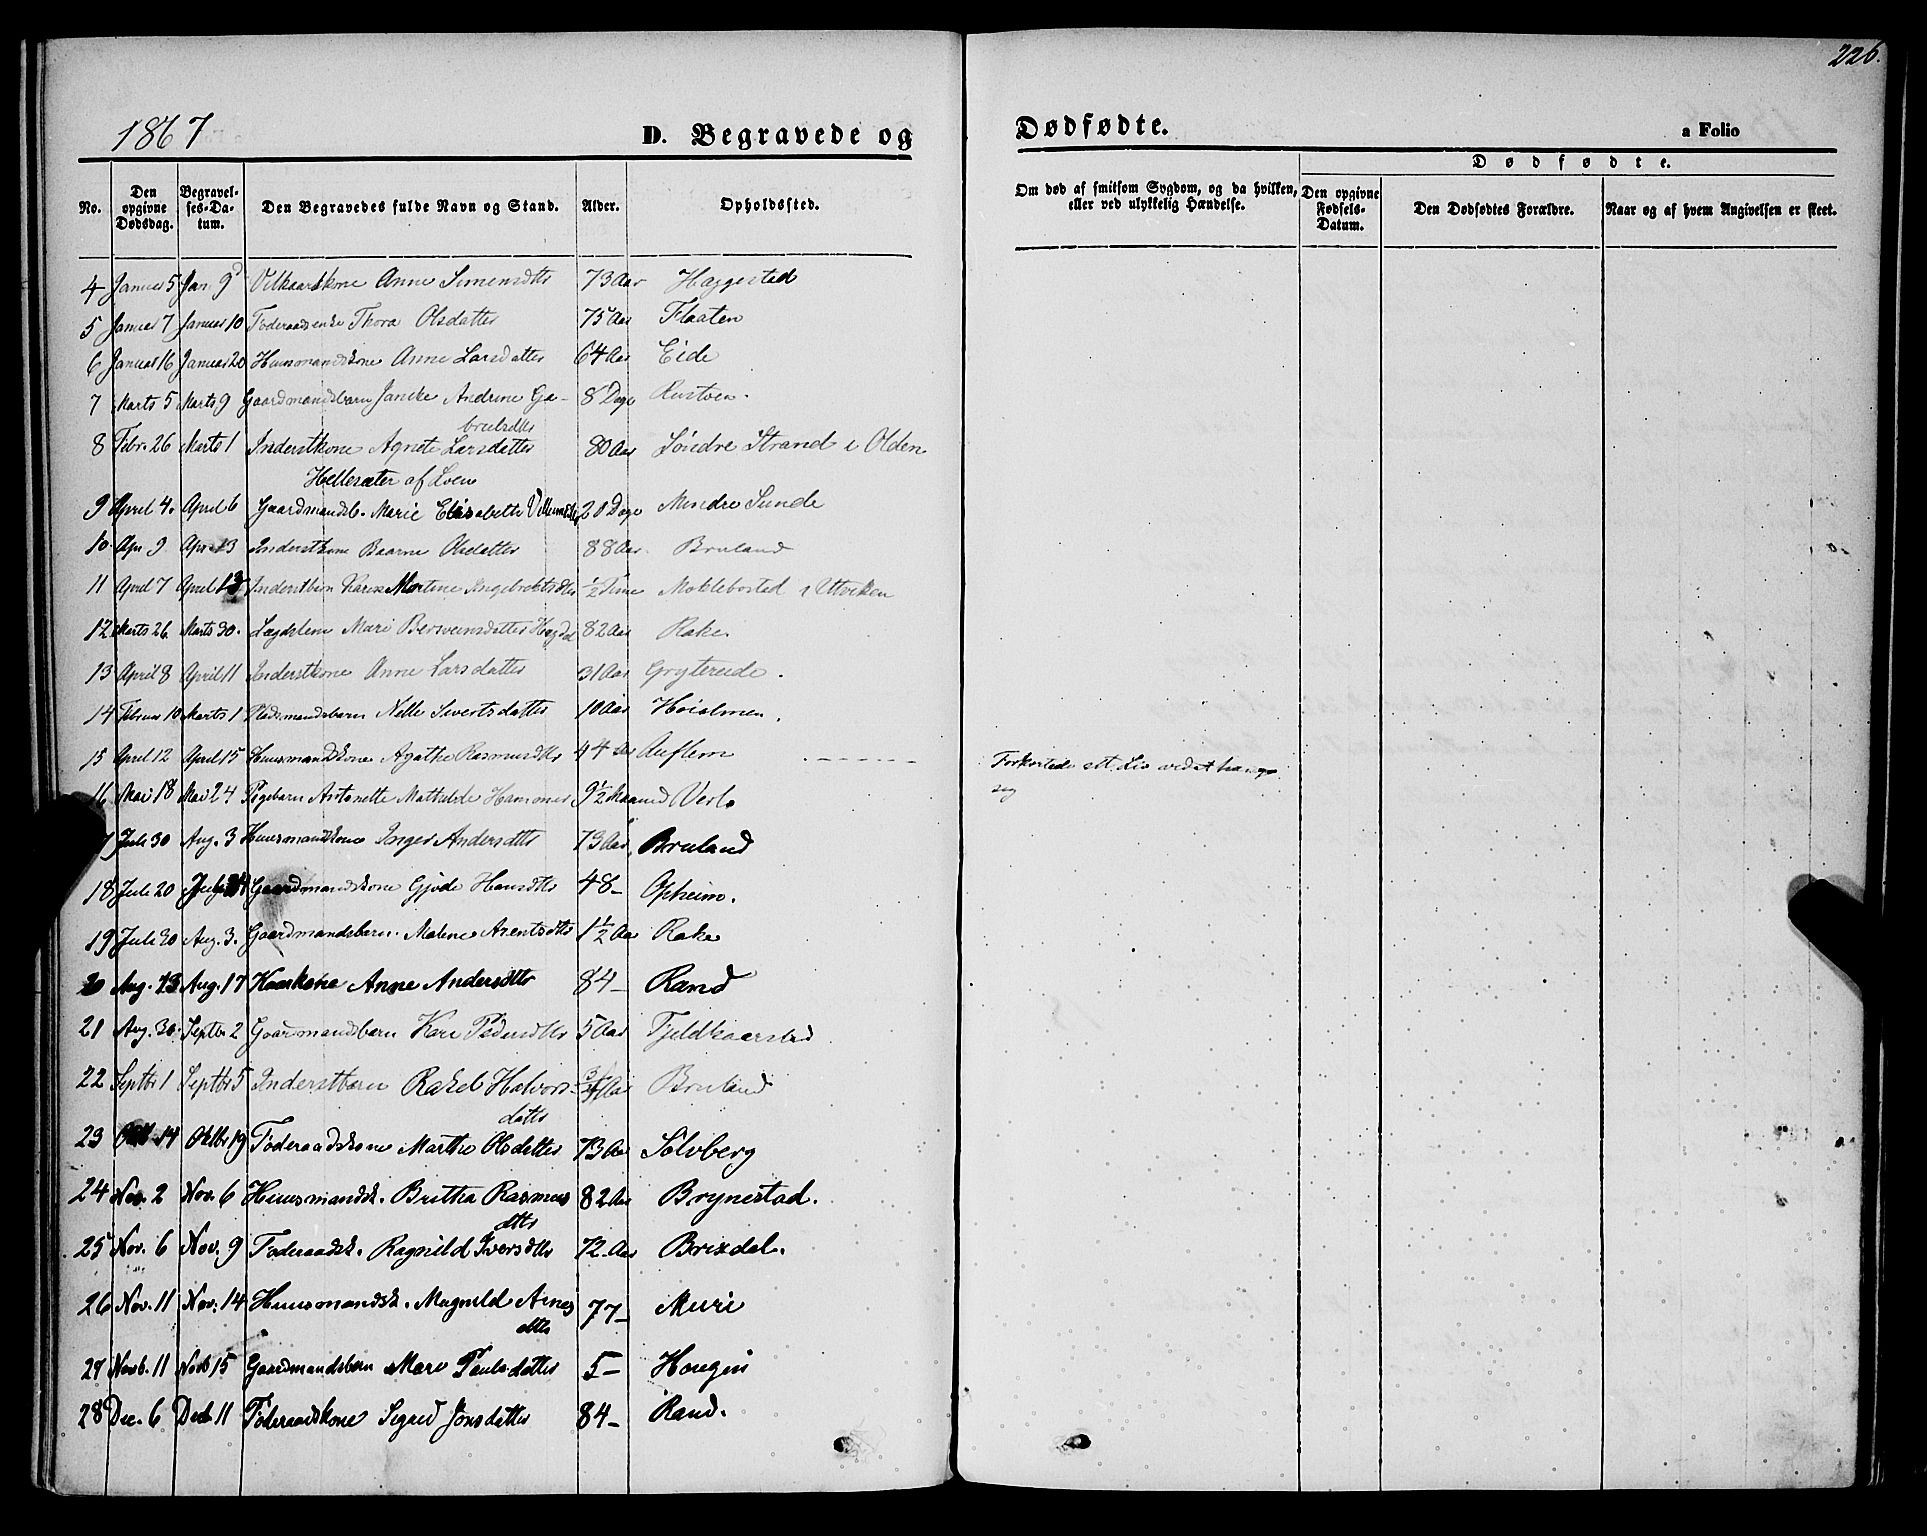 226.
1867 D. Begravede og Dødfødte. a Folio
No. Den opgivne Dødsdag. Begravelses-Datum. Den Begravedes fulde Navn og Stand. Alder. Opholdssted. Om død af smitsom Sygdom, og da hvilken, eller ved ulykkelig Hændelse. Dødfødte. Den opgivne Fødsels-Datum. Den Dødfødtes Forældre. Naar og af hvem Angivelsen er skeet.
4 Januar 5 Jan 9 Vilkaarskone Anne Simensdtr 73 Aar Haggestad
5 Januar 7 Januar 10 Føderaadsenke Thora Olsdatter 75 Aar Flaaten
6 Januar 16 Januar 20 Huusmandskone Anne Larsdatter 64 Aar Eide
7 Marts 5 Marts 9 Gaardmandsbarn Janike Andrine Ga- 8 Dage Rustøen.
brielsdtr
8 Febr. 26 Marts 1 Inderstkone Agnete Larsdatter 80 Aar Søndre Strand i Olden
Hellesæter af Loen
9 April 4. April 6 Gaardmandsb. Marie Elisabeth Villumsdtr 20 Dage Mindre Sunde
10 Apr 9 Apr 13 Inderstkone Baarne Olsdatter 88 Aar. Bruland
11 April 7 April 13 Inderstbarn Karen Martine Ingebrektsdtr ½ Time Moklebostad i Utviken
12 Marts 26 Marts 30. Lægdslem Mari Berveensdatter Hagdal 82 Aar Rake.
13 April 8 April 11 Inderstkone Anne Larsdatter 31 Aar Grytereide.
14 Februar 10 Marts 1 Pladsmandsbarn Nille Sivertsdatter 10 Aar Hoialmen.
15 April 12 April 15 Huusmandskone Agathe Rasmusdtr 44 Aar Auflem Forkortede sit Liv ved at hænge
sig
16 Mai 18 Mai 24 Pigebarn Antonette Mathilde Hammer 9½ Maaned Verlo
7 Juli 30 Aug. 3 Huusmandskone Inger Andersdtr 73 Aar Bruland
18 Juli 20 Juli 24 Gaardmandskone Gjøde Hansdtr 48 - Opheim.
19 Juli 30 Aug. 3. Gaardmandsbarn Malene Arentsdtr 1½ Aar Rake
20 Aug. 13 Aug. 17 Kaarkone Anne Andersdtr 84 - Rand
21 Aug. 30. Septbr 2 Gaardmandsbarn Kari Pedersdtr 5 Aar Fjeldkaarstad
22 Septbr 1 Septbr 5 Inderstbarn Rakel Halvors- 3/4 Aar Bruland
datter
23 Oct 14 Oktbr 19 Føderaadskone Marthe Olsdatter 73 Aar Solvberg
24 Nov. 2 Nov. 6 Huusmandsk. Brittha Rasmus 82 Aar Brynestad.
dtter
25 Nov. 6 Nov. 9 Føderaadsk. Ragnild Iversdtr 72. Aar Brixdal.
26 Nov. 11 Nov. 14 Huusmandsk. Magnild Arnes 77 - Muri
dtter
27 Novb. 11 Novb 15 Gaardmandsbarn Mari Paulsdatter 5 - Hougen
28 Dec. 6 Decb 11 Føderaadskone Sigrid Jonsdatter 84 - Rand.